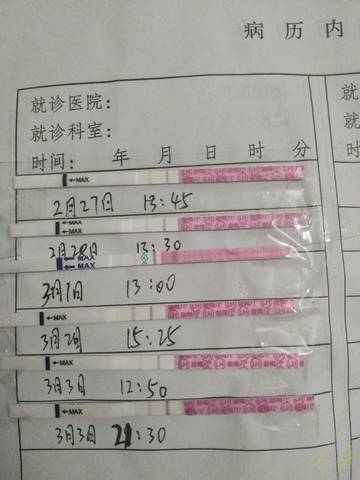 病历内
就诊医院：
就诊科室：
时间： 年 月 日 时 分
←MAX
2月27日 13:45
←MAX
2月28日 13:30
←MAX
←MAX
3月1日 13:00
←MAX
3月2日 15:25
←MAX
3月3日 12:50
←MAX
3月3日 21:30